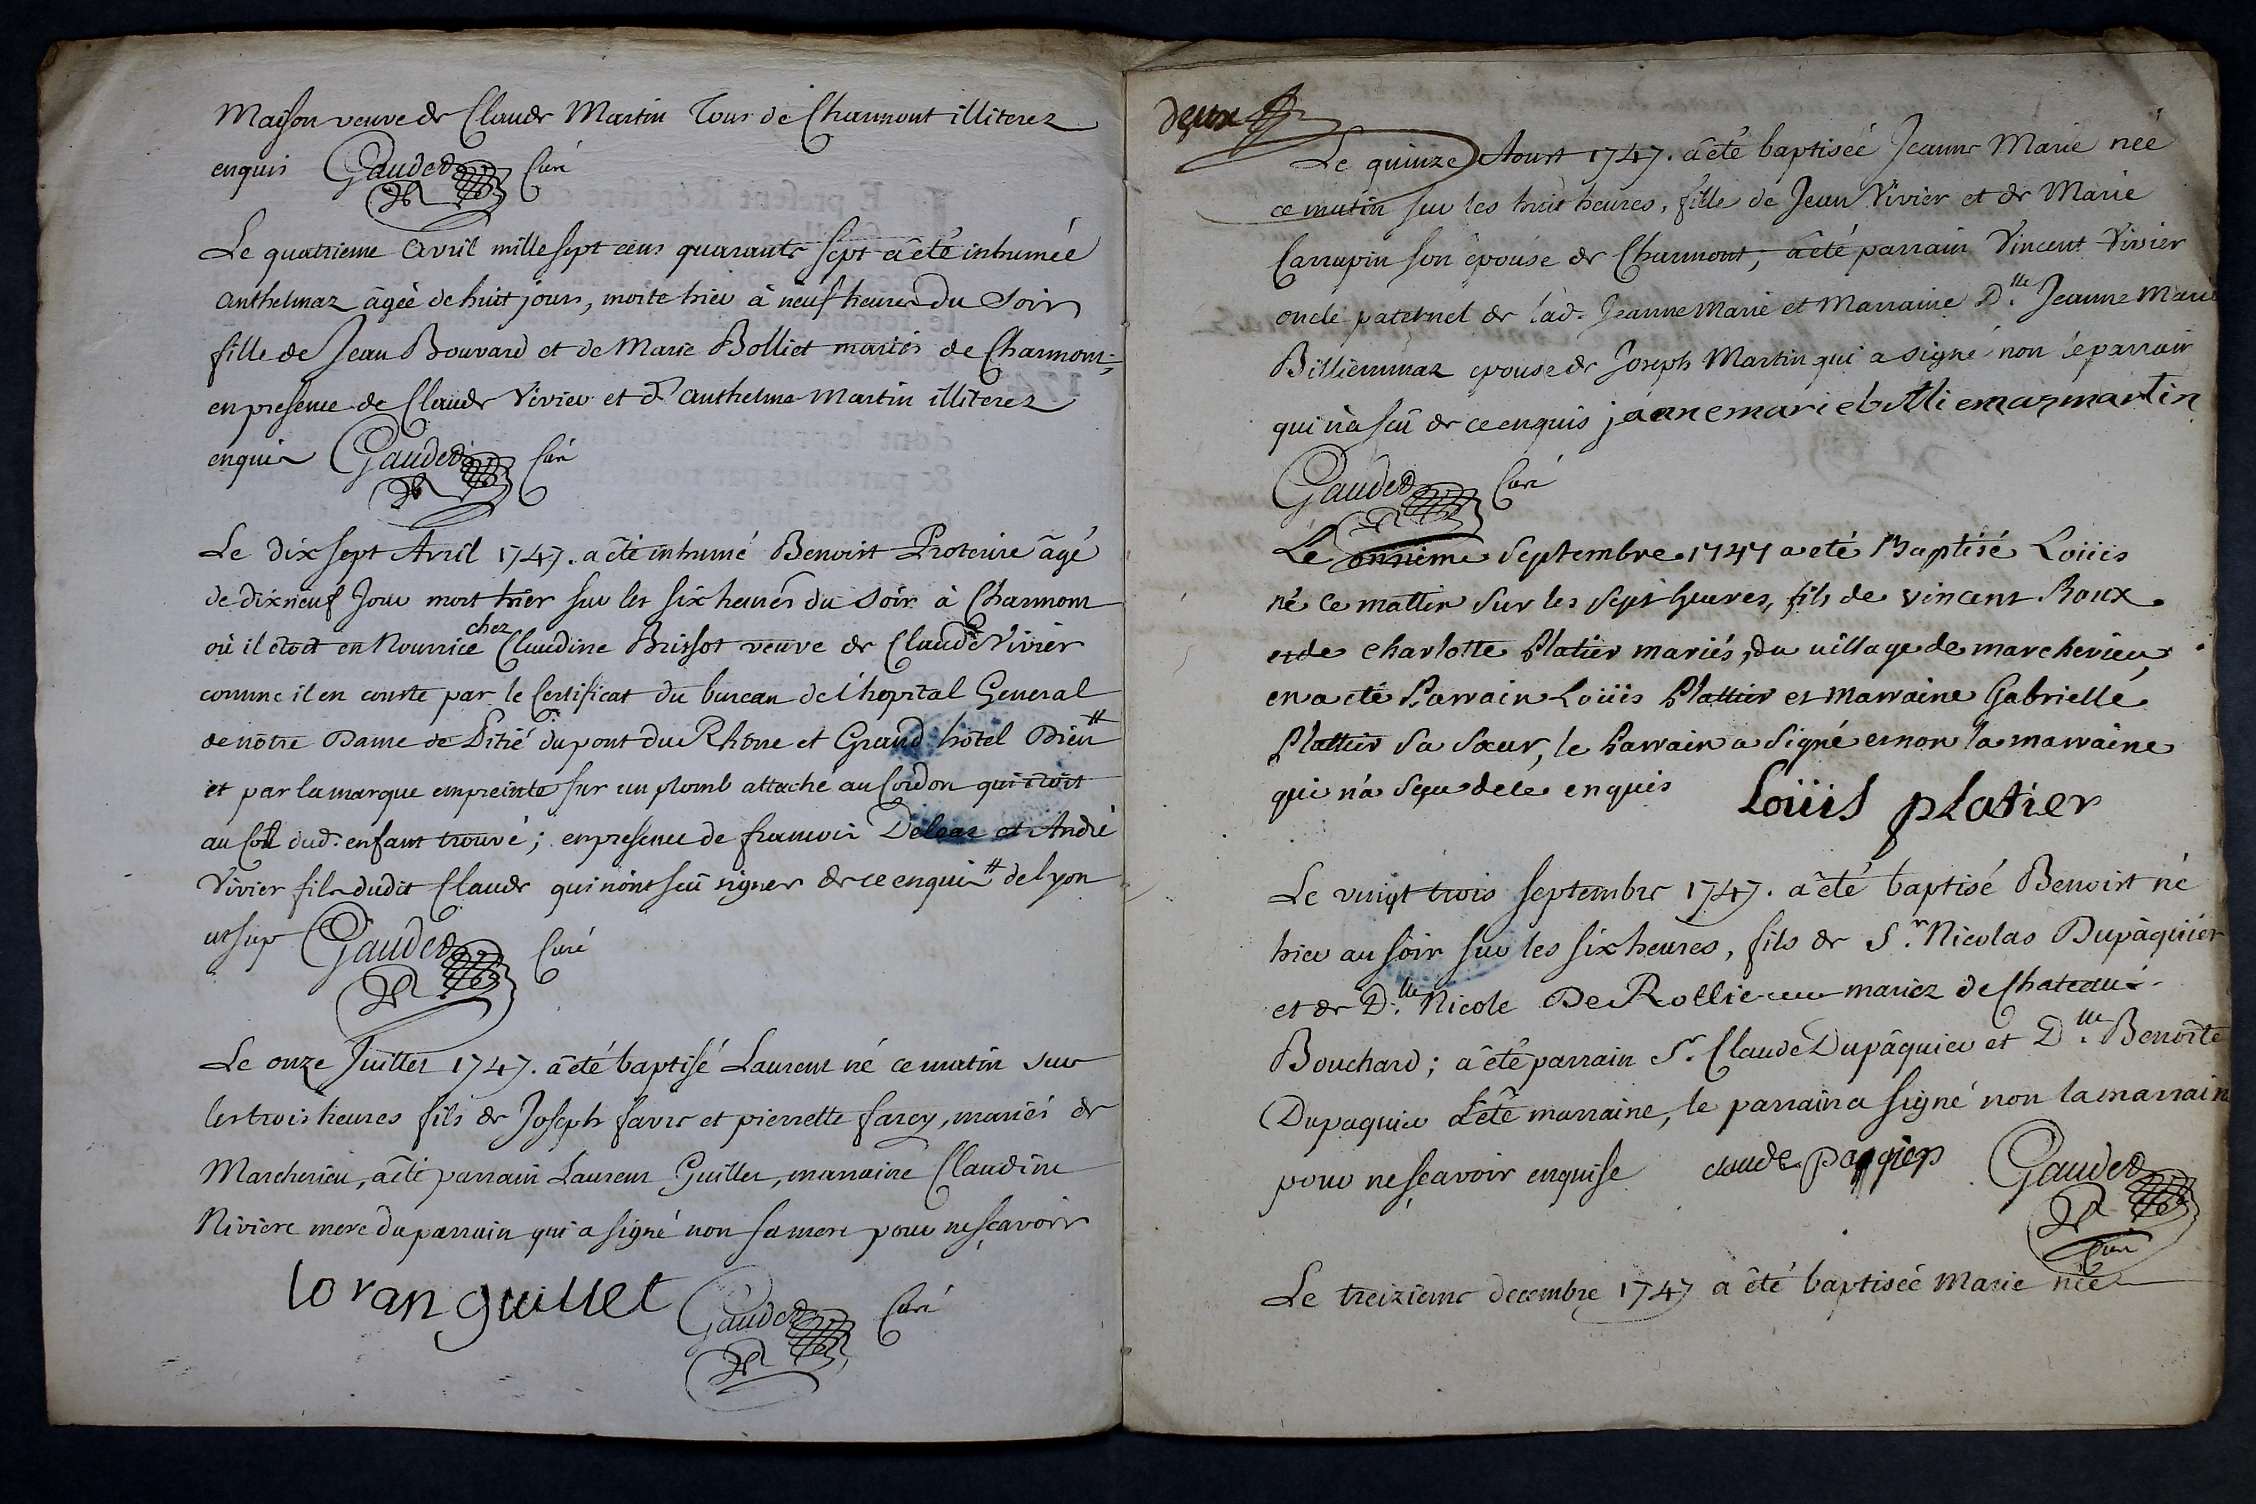 Maison veuve de Claude Martin Tous de Charmont illiterez
enquis Gauded Curé
Le quatrieme avril mille sept cens quarante sept a été inhumée
anthelmaz âgée de huit jours, morte hier à neuf heures du soir
fille de Jean Bouvard et de Marie Bolliet mariés de Charmont;
en presence de Claude Vivier et d'anthelme Martin illiterez
enquis Gauded Curé
Le dix sept Avril 1747. a été inhumé Benoist âgé
de dixneuf Jour mort hier sur les six heures du soir à Charmont
chez
où il étoit en Nourrice Claudine Brissot veuve de Claude Vivier
comme il en conste par le Certificat du bureau de l'hopital General
de nôtre Dame de Pitié du pont du Rhône et Grand hôtel Dieu #
et par la marque empreinte sur un plomb attaché au Cordon qui étoit
au Col dud. enfant trouvé; en presence de francois et André
Vivier fils dudit Claude qui n'ont sçû signer de ce enquis # de lyon
ut sup Gauded Curé
Le onze Juillet 1747. a été baptisé Laurent né ce matin sur
les trois heures fils de Joseph favre et pierrette farcy, mariés de
Marcherieu, a été parrain Laurent Guillet, marraine Claudine
Niviere mere du parrain qui a signé non sa mere pour ne sçavoir
loran guillet Gauded Curé
deux
Le quinze Aoust 1747. a été baptisée Jeanne Marie née
ce matin sur les huit heures, fille de Jean Vivier et de Marie
Carrapin son épouse de Charmont, a été parrain Vincent Vivier
oncle paternel de lad. Jeanne Marie et Marraine D.lle Jeanne Marie
Billiemmaz épouse de Joseph Martin qui a signé non le parrain
qui n'a sçû de ce enquis jeanne marie billiemaz martin
Gauded Curé
Le onzieme Septembre 1747 a eté Baptisé Loüis
né ce mattin sur les sept heures, fils de vincent Roux
et de Charlotte Platier mariés, du village de marcherieu,
en a eté Parrain Loüis Plattier et Marraine Gabrielle
Plattier sa sœur, le Parrain a signé et non la marraine
qui n'a sçu de ce enquis Loüis platier
Le vingt trois septembre 1747. a été baptisé Benoist né
hier au soir sur les six heures, fils de S.r Nicolas Dupâquier
et de D.lle Nicole De Rollieu mariez de Chateau-
Bouchard; a été parrain S.r Claude Dupâquier et D.lle Benoite
Dupaquier a été marraine, le parrain a signé non la marraine
pour ne sçavoir enquise claude Gauded
Curé
Le treizieme decembre 1747 a été baptisée Marie née